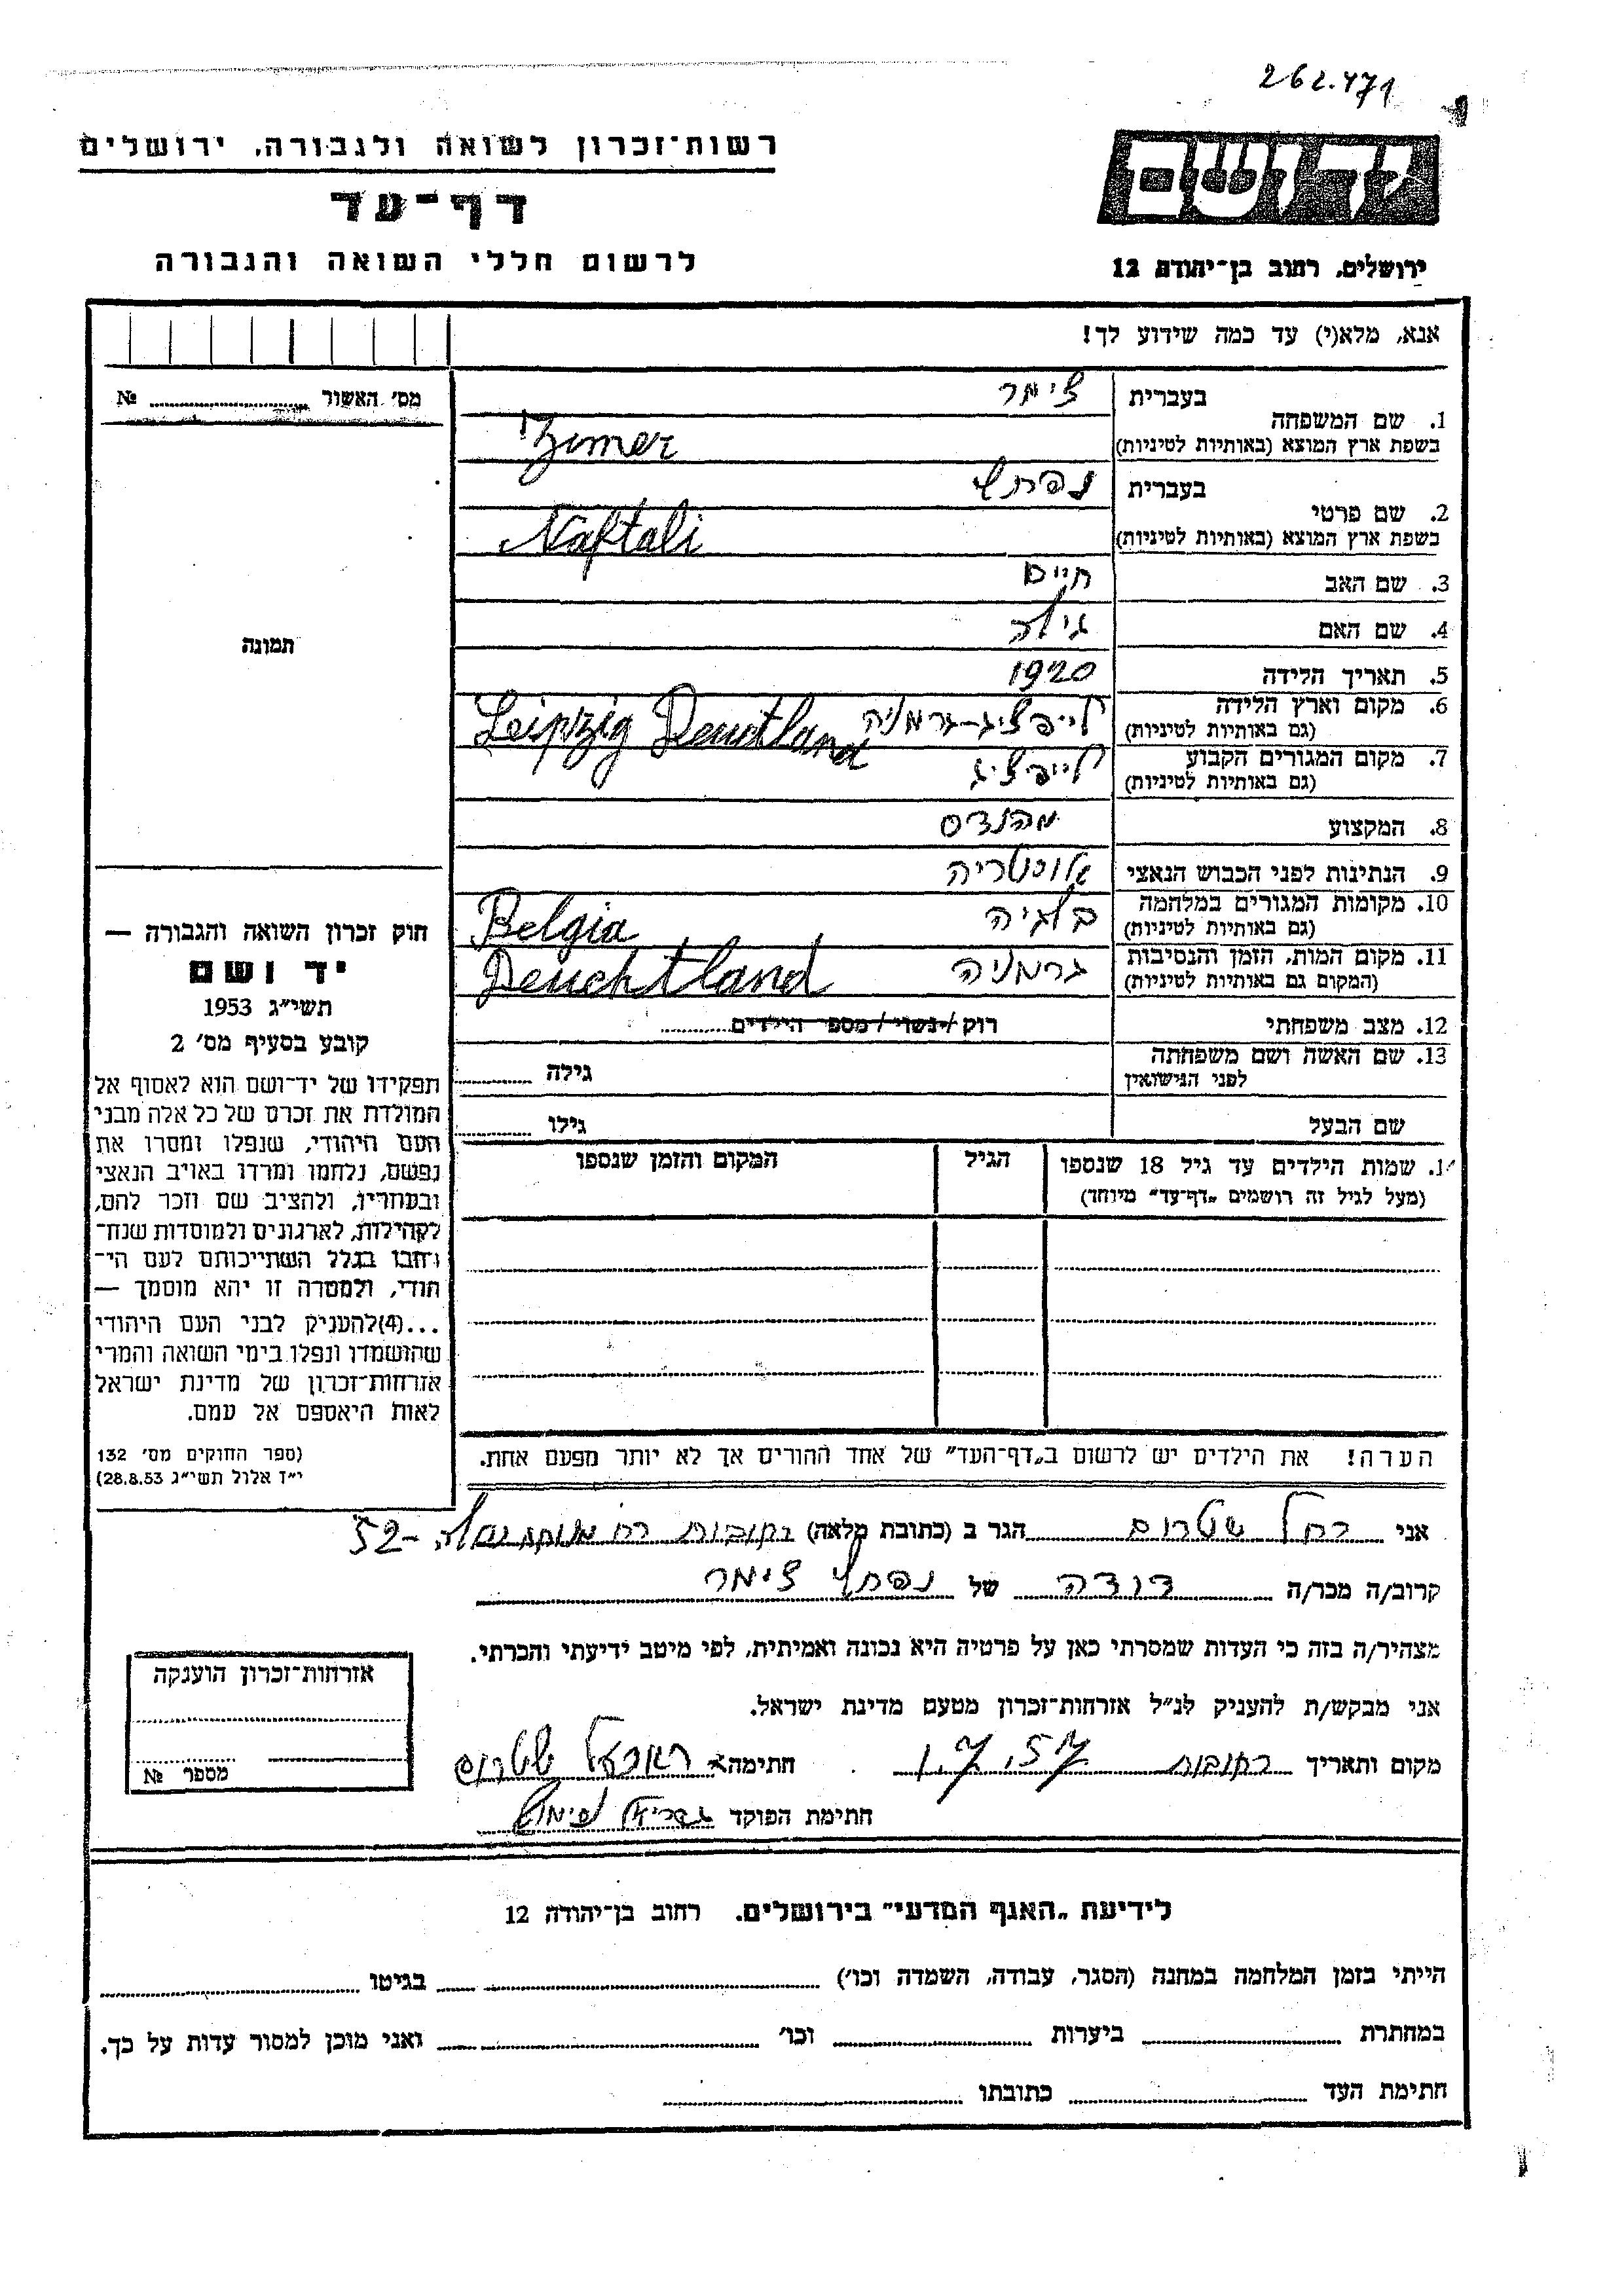 262.471
רשות־זכרון לשואה ולגבורה, ירושלים
דף־עד
לרשום חללי השואה והגבורה
יד ושם
ירושלים, רחוב בן־יהודה 12
אנא, מלא(י) עד כמה שידוע לך!
מס' האשור № 
1. שם המשפחה
בעברית צימר
בשפת ארץ המוצא (באותיות לטיניות) Zimer
2. שם פרטי
בעברית נפתלי
בשפת ארץ המוצא (באותיות לטיניות) Naftali
3. שם האב חיים
4. שם האם גילה
5. תאריך הלידה 1920
6. מקום וארץ הלידה
(גם באותיות לטיניות) לייפציג-גרמניה Leipzig Deuctland
7. מקום המגורים הקבוע
(גם באותיות לטיניות) לייפציג
8. המקצוע מהנדס
9. הנתינות לפני הכבוש הנאצי אוסטריה
10. מקומות המגורים במלחמה
(גם באותיות לטיניות) בלגיה Belgia
11. מקום המות, הזמן והנסיבות
(המקום גם באותיות לטיניות) גרמניה Deuchtland
12. מצב משפחתי רוק/ינשוי/מספר הילדים
13. שם האשה ושם משפחתה
לפני הנישואין גילה
שם הבעל גילו
תמונה
חוק זכרון השואה והגבורה —
יד ושם
תשי״ג 1953
קובע בסעיף מס' 2
תפקידו של יד־ושם הוא לאסוף אל
המולדת את זכרם של כל אלה מבני
העם היהודי, שנפלו ומסרו את
נפשם, נלחמו ומרדו באויב הנאצי
ובעוזריו, ולהציב שם וזכר להם,
לקהילות, לארגונים ולמוסדות שנח־
רבו בגלל השתייכותם לעם הי־
הודי, ולמטרה זו יהא מוסמך —
...(4)להעניק לבני העם היהודי
שהושמדו ונפלו בימי השואה והמרי
אזרחות־זכרון של מדינת ישראל
לאות היאספם אל עמם.
(ספר החוקים מס' 132
י״ז אלול תשי״ג 28.8.53)
1. שמות הילדים עד גיל 18 שנספו
(מעל לגיל זה רושמים „דף־עד״ מיוחד)
הגיל
המקום והזמן שנספו
הערה! את הילדים יש לרשום ב„דף־העד״ של אחד ההורים אך לא יותר מפעם אחת.
אני רחל שטרום הגר ב (כתובת מלאה) רחובות רח 52-
קרוב/ה מכר/ה דודה של נפתלי צימר
מצהיר/ה בזה כי העדות שמסרתי כאן על פרטיה היא נכונה ואמיתית, לפי מיטב ידיעתי והכרתי.
אני מבקש/ת להעניק לנ״ל אזרחות־זכרון מטעם מדינת ישראל.
מקום ותאריך רחובות 1.7.57 חתימה שטרום
חתימת הפוקד
אזרחות־זכרון הוענקה
מספר №
לידיעת „האגף המדעי״ בירושלים. רחוב בן־יהודה 12
הייתי בזמן המלחמה במחנה (הסגר, עבודה, השמדה וכו') בגיטו
במחתרת ביערות וכו' ואני מוכן למסור עדות על כך.
חתימת העד כתובתו